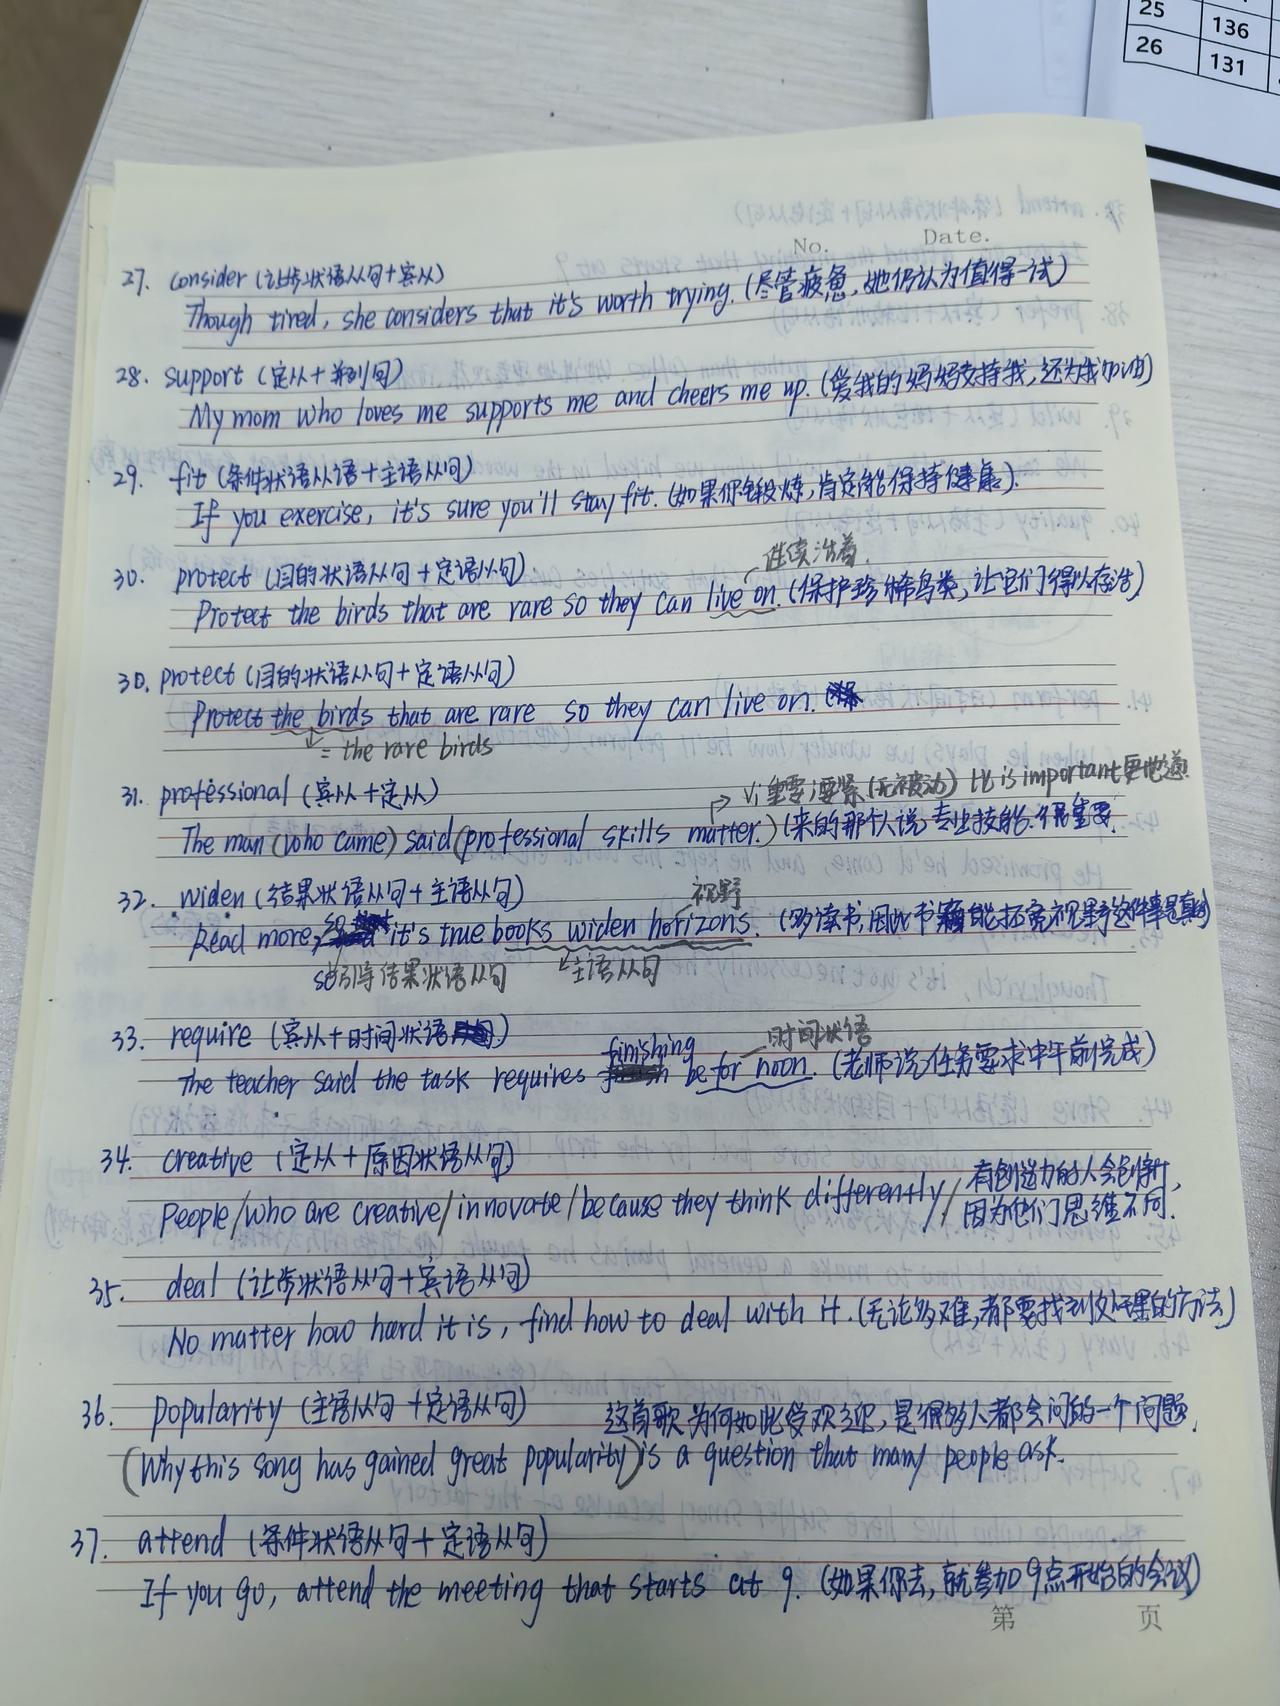 25 136
26 131
No. Date.
27. consider (让步状语从句+宾从)
Though tired, she considers that it's worth trying. (尽管疲惫, 她仍认为值得一试)
28. support (定从+并列句)
My mom who loves me supports me and cheers me up. (爱我的妈妈支持我, 还为我加油)
29. fit (条件状语从语+主语从句)
If you exercise, it's sure you'll stay fit. (如果你锻炼, 肯定能保持健康).
30. protect (目的状语从句+定语从句)
继续活着.
Protect the birds that are rare so they can live on. (保护珍稀鸟类, 让它们得以存活)
30. protect (目的状语从句+定语从句)
Protect the birds that are rare so they can live on.
= the rare birds
31. professional (宾从+定从)
vi 重要;要紧 (无被动) 比 is important 更地道
The man (who came) said (professional skills matter.) (来的那个人说专业技能很重要.
32. widen (结果状语从句+主语从句)
视野
Read more, so it's true books widen horizons. (多读书, 因此书能拓宽视界这件事是真的)
so引导结果状语从句 主语从句
33. require (宾从+时间状语)
finishing 时间状语
The teacher said the task requires befor noon. (老师说任务要求中午前完成)
34. creative (定从+原因状语从句)
有创造力的人会创新,
People/who are creative/innovate/because they think differently/ 因为他们思维不同.
35. deal (让步状语从句+宾语从句)
No matter how hard it is, find how to deal with it. (无论多难, 都要找到处理的方法)
36. popularity (主语从句+定语从句) 这首歌为何如此受欢迎, 是很多人都会问的一个问题.
(Why this song has gained great popularity) is a question that many people ask.
37. attend (条件状语从句+定语从句)
If you go, attend the meeting that starts at 9. (如果你去, 就参加9点开始的会议)
第 页